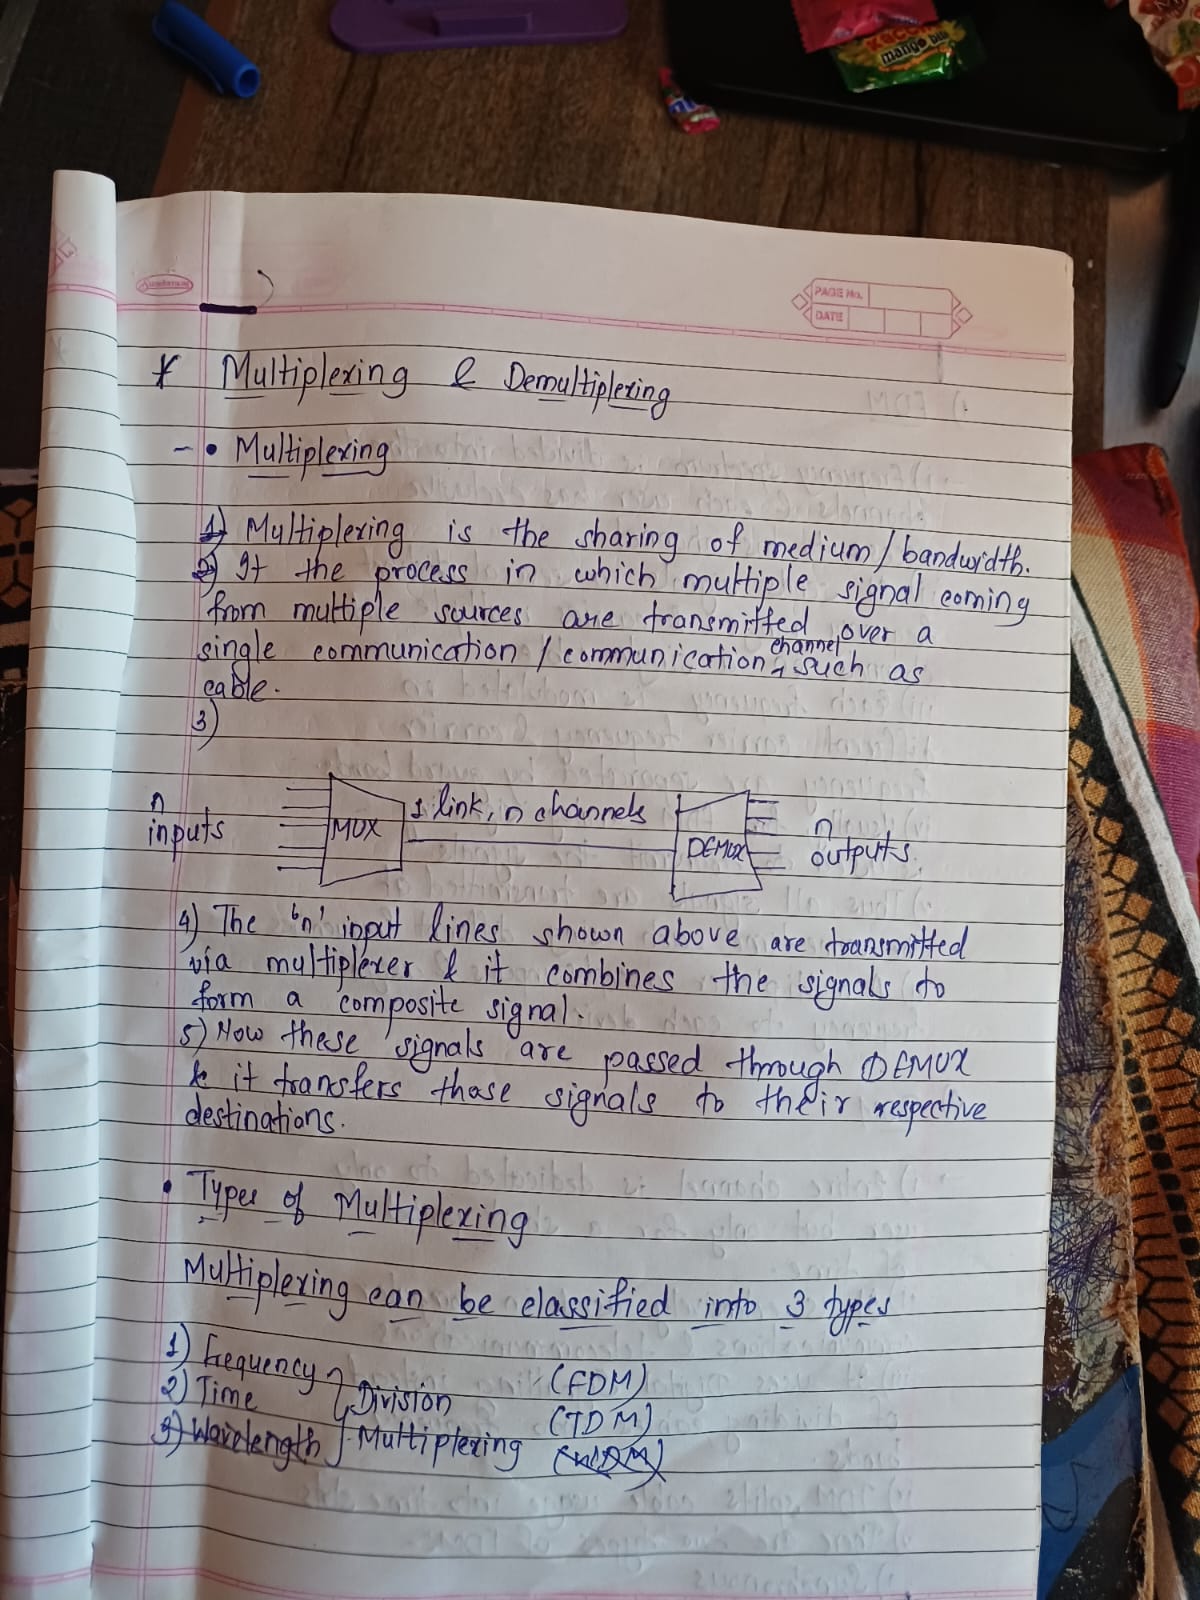 Kacc
mango bite
PAGE No.
DATE
* Multiplexing & Demultiplexing
- • Multiplexing
1) Multiplexing is the sharing of medium/bandwidth.
2) It the process in which multiple signal coming
from multiple sources are transmitted over a
single communication / communication channel such as
cable.
3)
n inputs
MUX
1 link, n channels
DEMUX
n outputs.
4) The 'n' input lines shown above are transmitted
via multiplexer & it combines the signals to
form a composite signal.
5) Now these signals are passed through DEMUX
& it transfers those signals to their respective
destinations.
• Types of Multiplexing
Multiplexing can be classified into 3 types
1) Frequency (FDM)
2) Time Division (TDM)
3) Wavelength Multiplexing (WDM)